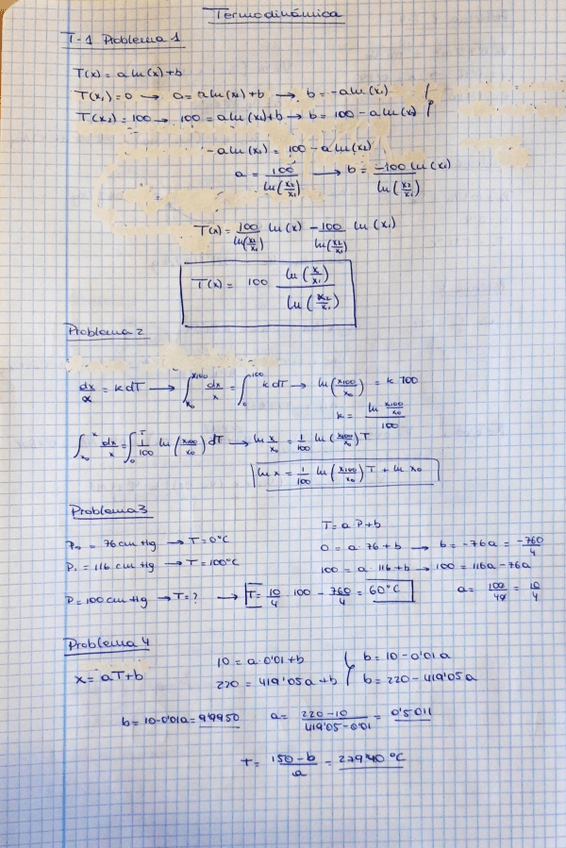 Termodinámica
T-1 Problema 1
T(x) = a ln(x) + b
T(x₁) = 0 → 0 = a ln(x₁) + b → b = -a ln(x₁)
T(x₂) = 100 → 100 = a ln(x₂) + b → b = 100 - a ln(x₂)
-a ln(x₁) = 100 - a ln(x₂)
a = 100 / ln(x₂/x₁) → b = -100 ln(x₁) / ln(x₂/x₁)
T(x) = 100 / ln(x₂/x₁) ln(x) - 100 / ln(x₂/x₁) ln(x₁)
T(x) = 100 ln(x/x₁) / ln(x₂/x₁)
Problema 2
dx/x = k dT → ∫_{x₀}^{x₁₀₀} dx/x = ∫_0^{100} k dT → ln(x₁₀₀/x₀) = k 100
k = ln(x₁₀₀/x₀) / 100
∫_{x₀}^{x} dx/x = ∫_0^T 1/100 ln(x₁₀₀/x₀) dT → ln x/x₀ = 1/100 ln(x₁₀₀/x₀) T
ln x = 1/100 ln(x₁₀₀/x₀) T + ln x₀
Problema 3
T = a P + b
P₀ = 76 cm Hg → T = 0°C
0 = a · 76 + b → b = -76a = -760/4
P₁ = 116 cm Hg → T = 100°C
100 = a · 116 + b → 100 = 116a - 76a
P = 100 cm Hg → T = ? → T = 10/4 · 100 - 760/4 = 60°C
a = 100/40 = 10/4
Problema 4
x = aT + b
10 = a · 0'01 + b
b = 10 - 0'01 a
220 = 419'05 a + b
b = 220 - 419'05 a
b = 10 - 0'01a = 9'9950
a = 220 - 10 / 419'05 - 0'01 = 0'5011
T = 150 - b / a = 279'40 °C